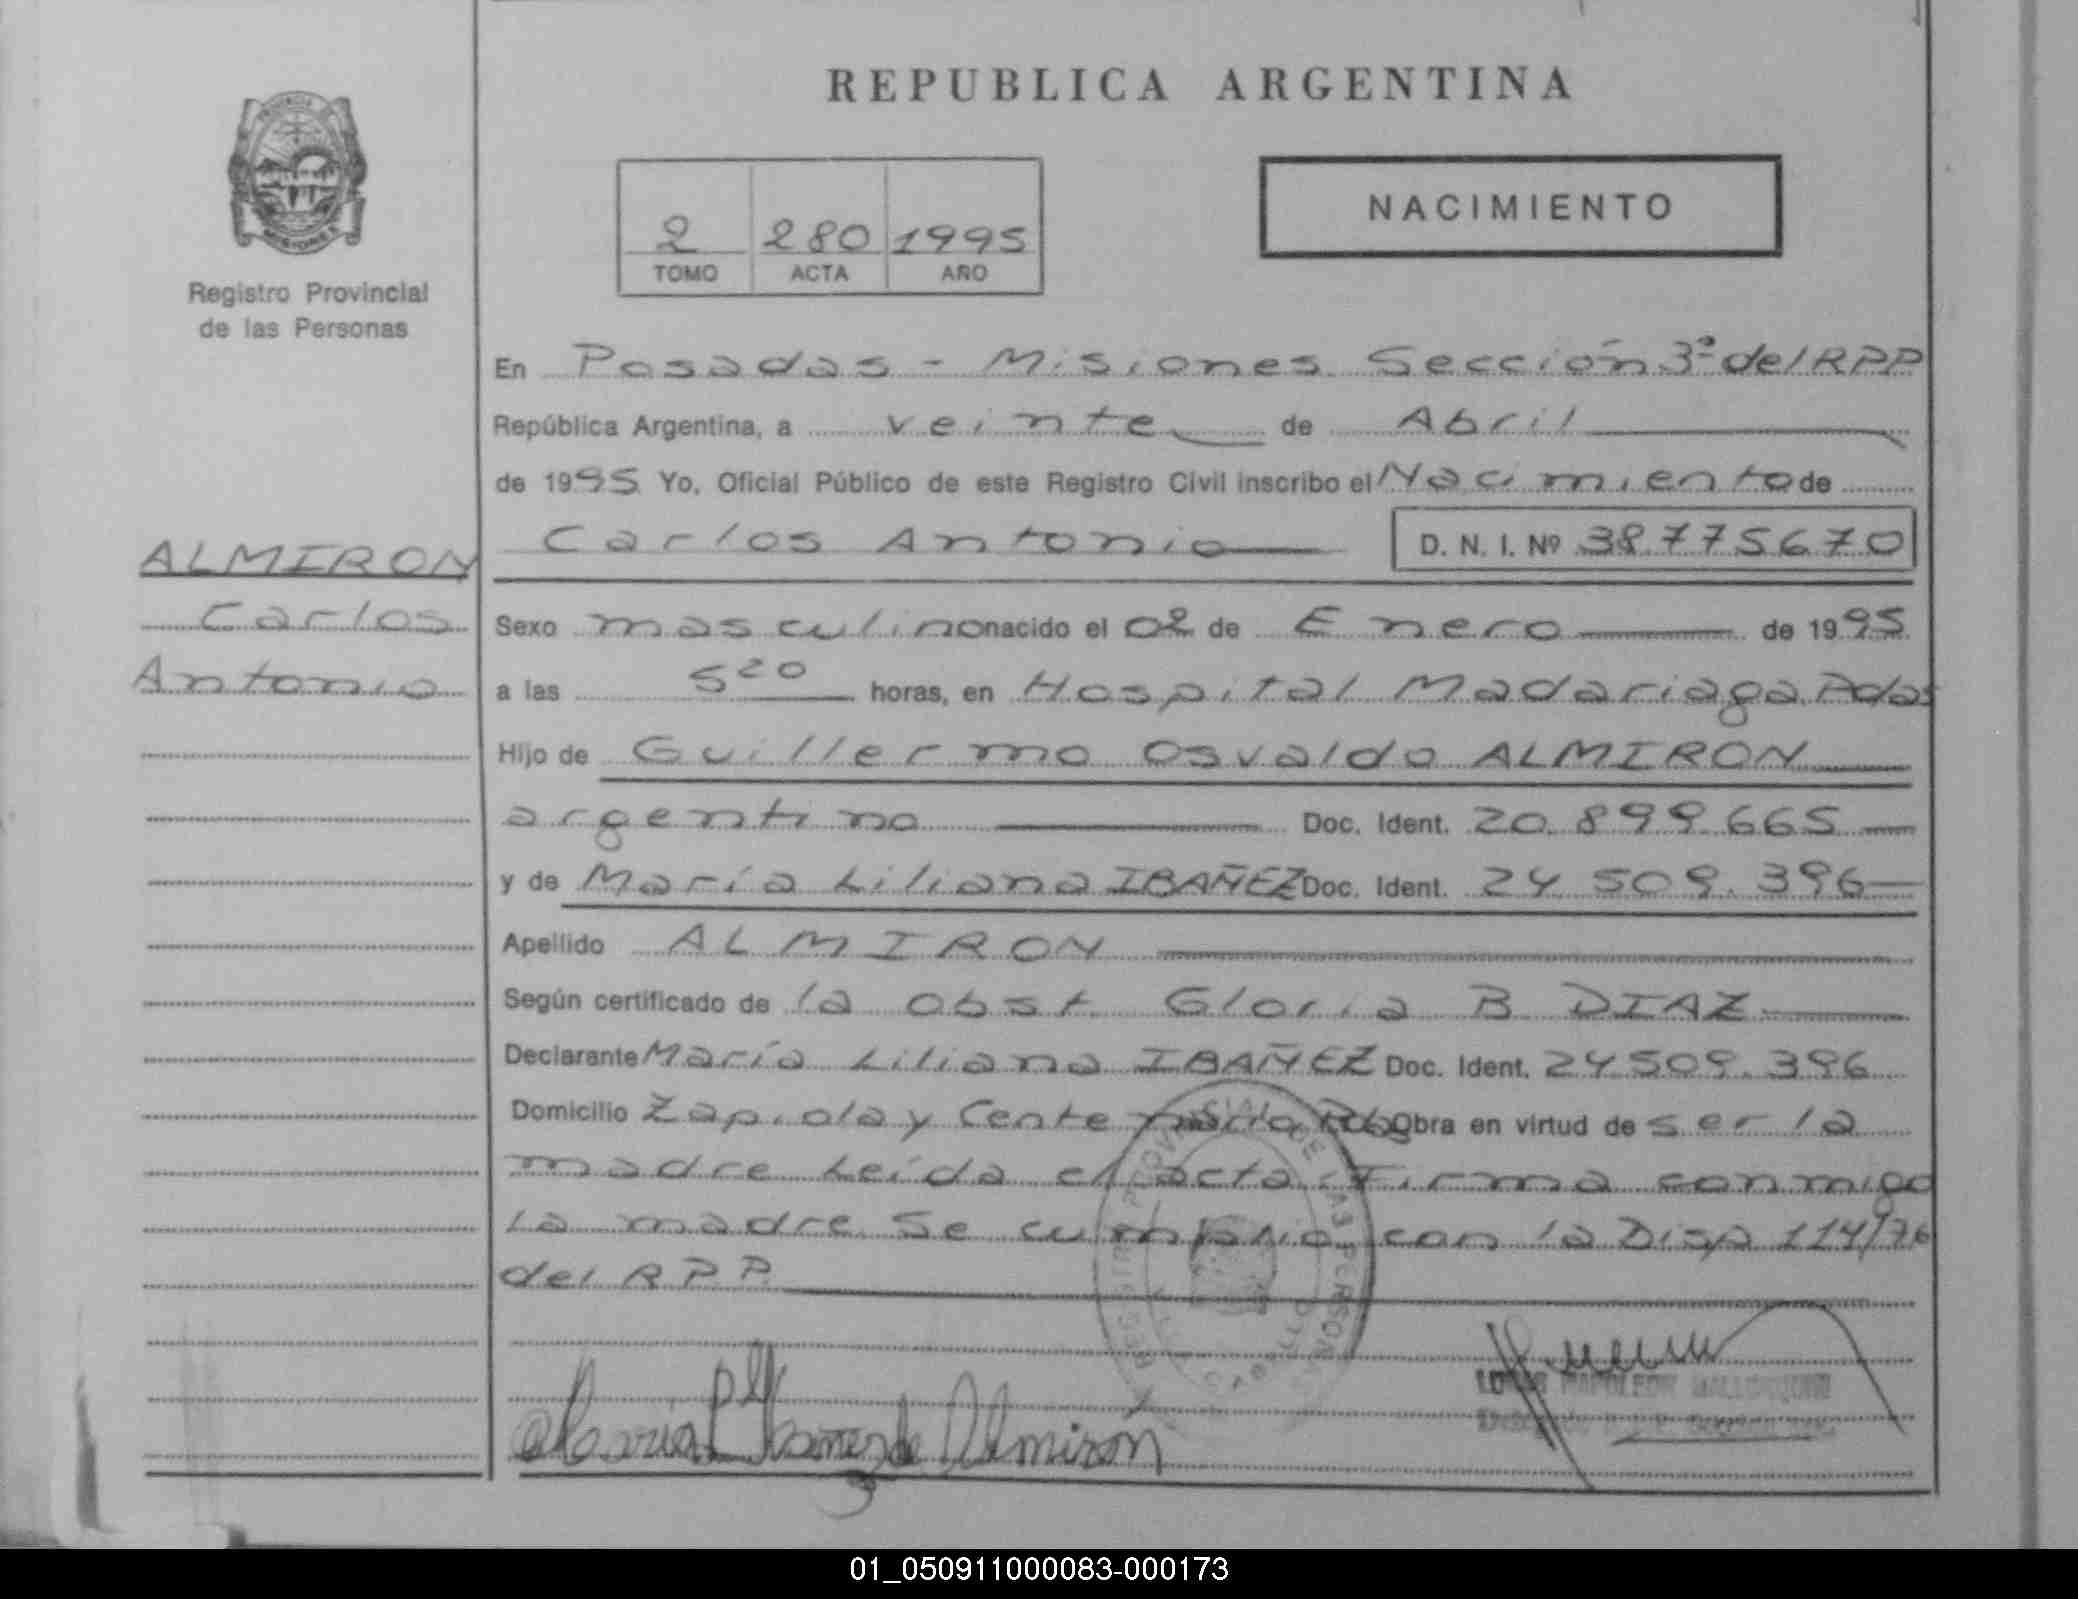 REPUBLICA ARGENTINA
NACIMIENTO
2 280 1995
TOMO ACTA AÑO
Registro Provincial
de las Personas
En Posadas - Misiones. Sección 3ª del RPP
República Argentina, a veinte de Abril
de 1995 Yo, Oficial Público de este Registro Civil inscribo el Nacimiento de
Carlos Antonio D. N. I. Nº 38.775670
ALMIRON
Carlos
Antonio
Sexo masculino nacido el 02 de Enero de 1995
a las 5 20 horas, en Hospital Madariaga. Pdas
Hijo de Guillermo Osvaldo ALMIRON
argentino Doc. Ident. 20.899.665
y de María Liliana IBAÑEZ Doc. Ident. 24 509.396
Apellido ALMIRON
Según certificado de la obst. Gloria B DIAZ
Declarante María Liliana IBAÑEZ Doc. Ident. 24509.396
Domicilio Zapiola y Centenario Obra en virtud de ser la
madre Leída el acta Firma conmigo
la madre. Se cumplio con la Disp 114/76
del R.P.P.
REGISTRO PROVINCIAL DE LAS PERSONAS
Almiron
01_050911000083-000173